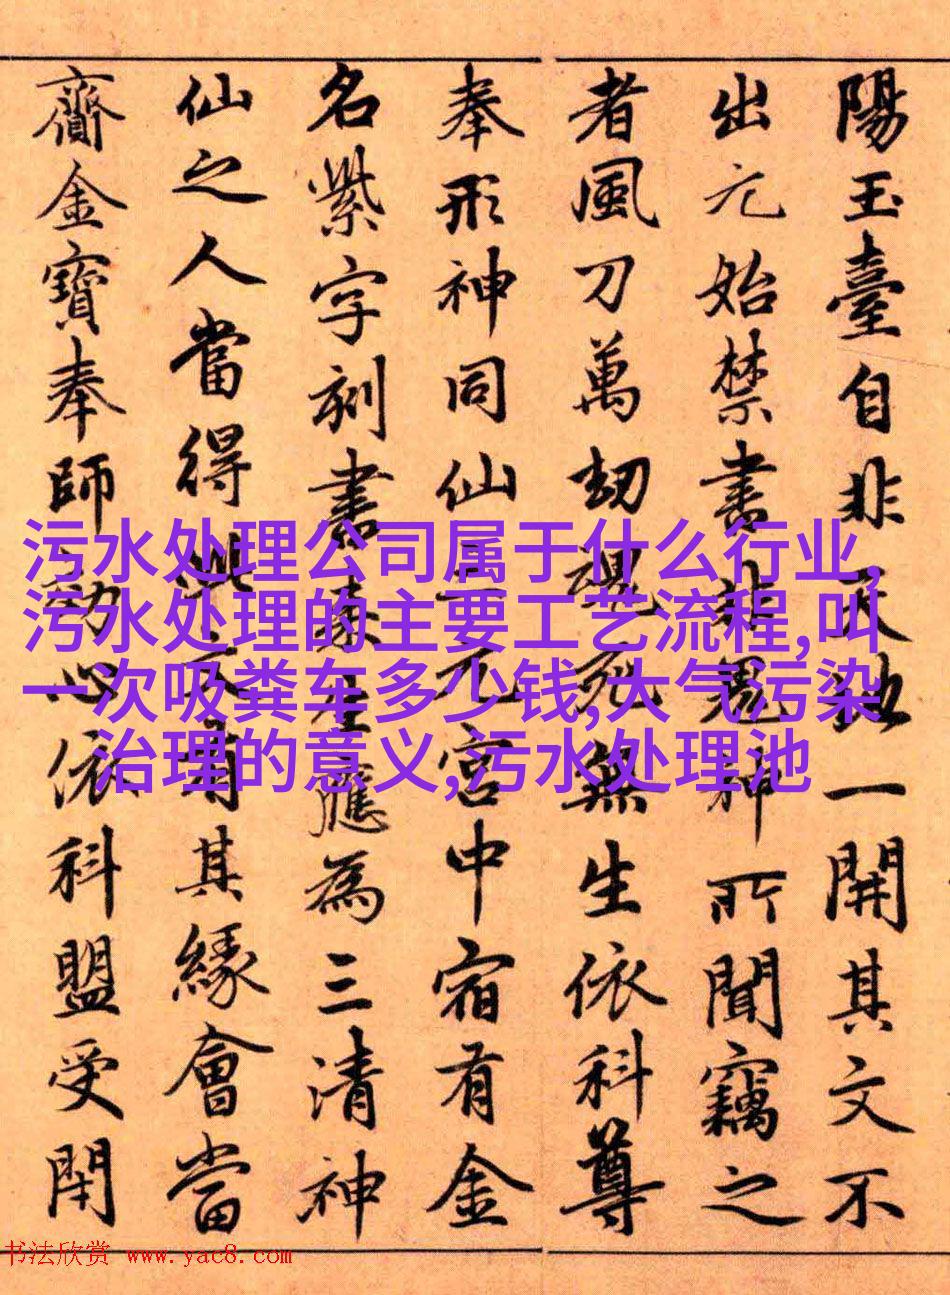 陽玉臺自非天地一開其文不
出元始禁書非鬼神所聞竊之
者風刀萬劫魂死無生依科尊
奉形神同仙三元宮中宿有金
名紫字刻書來生應為三清神
仙之人當得此文有其緣會當
齎金寶奉師劾心依科盟受閇
污水处理公司属于什么行业,
污水处理的主要工艺流程,叫
一次吸粪车多少钱,大气污染
治理的意义,污水处理池
书法欣赏 www.yac8.com